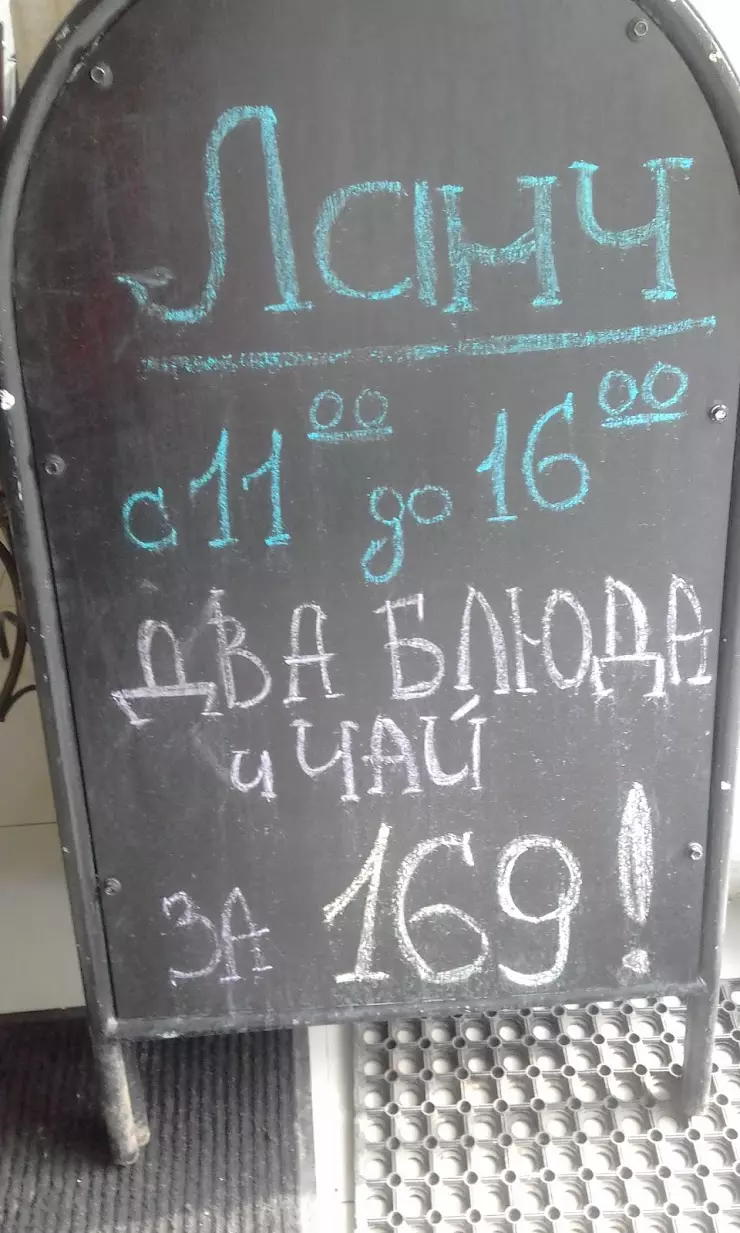 Ланч
с 11 00 до 16 00
ДВА БЛЮДА
и ЧАЙ
ЗА 169!